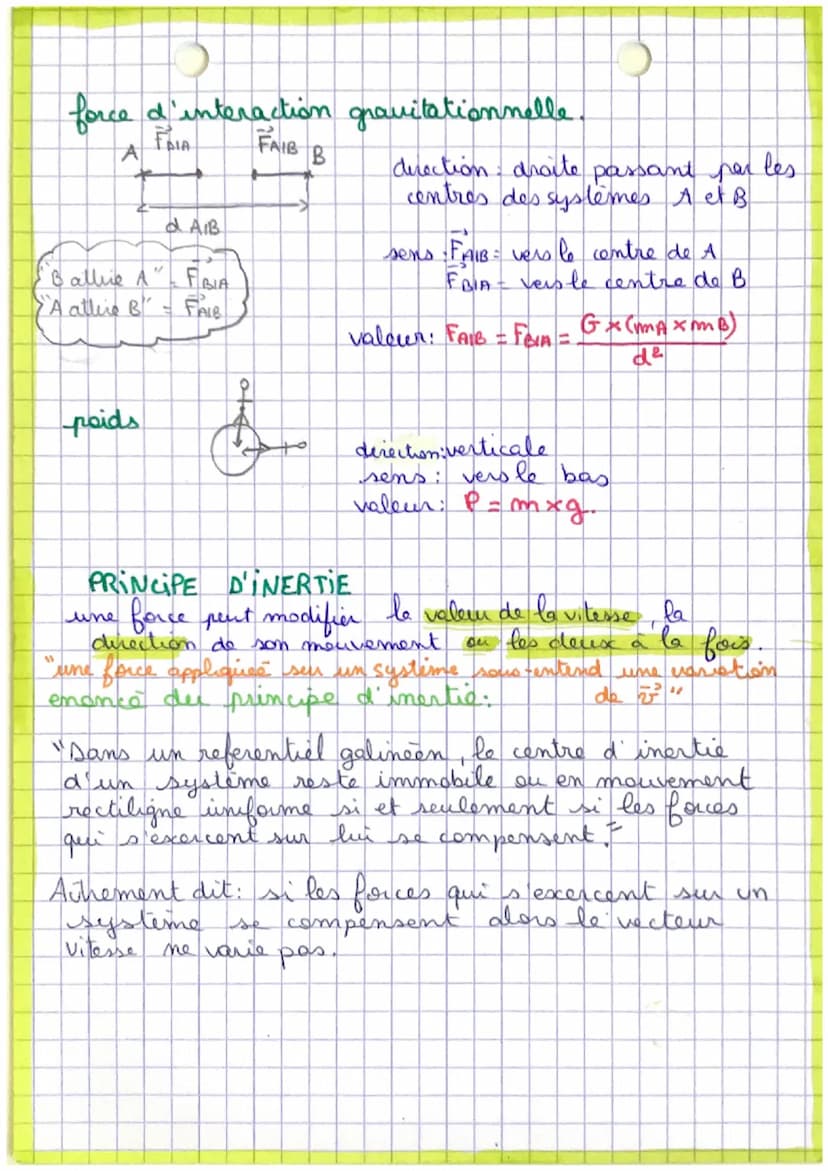 force d'interaction gravitationnelle.
A F⃗B/A F⃗A/B B
d A/B
direction : droite passant par les
centres des systèmes A et B
"B attire A" = F⃗B/A
"A attire B" = F⃗A/B
sens : F⃗A/B = vers le centre de A
F⃗B/A = vers le centre de B
valeur: FA/B = FB/A = G × (mA × mB)
d²
poids
direction: verticale
sens : vers le bas
valeur : P = m × g.
PRiNCiPE D'iNERTiE
une force peut modifier la valeur de la vitesse, la
direction de son mouvement ou les deux à la fois.
"une force appliqueé sur un système sous-entend une variation
de v⃗ "
enoncé du principe d'inertie:
"Dans un referentiel galinéen, le centre d'inertie
d'un système reste immobile ou en mouvement
rectiligne uniforme si et seulement si les forces
qui s'exercent sur lui se compensent."
Authement dit: si les forces qui s'exercent sur un
système se compensent alors le vecteur
vitesse ne varie pas.